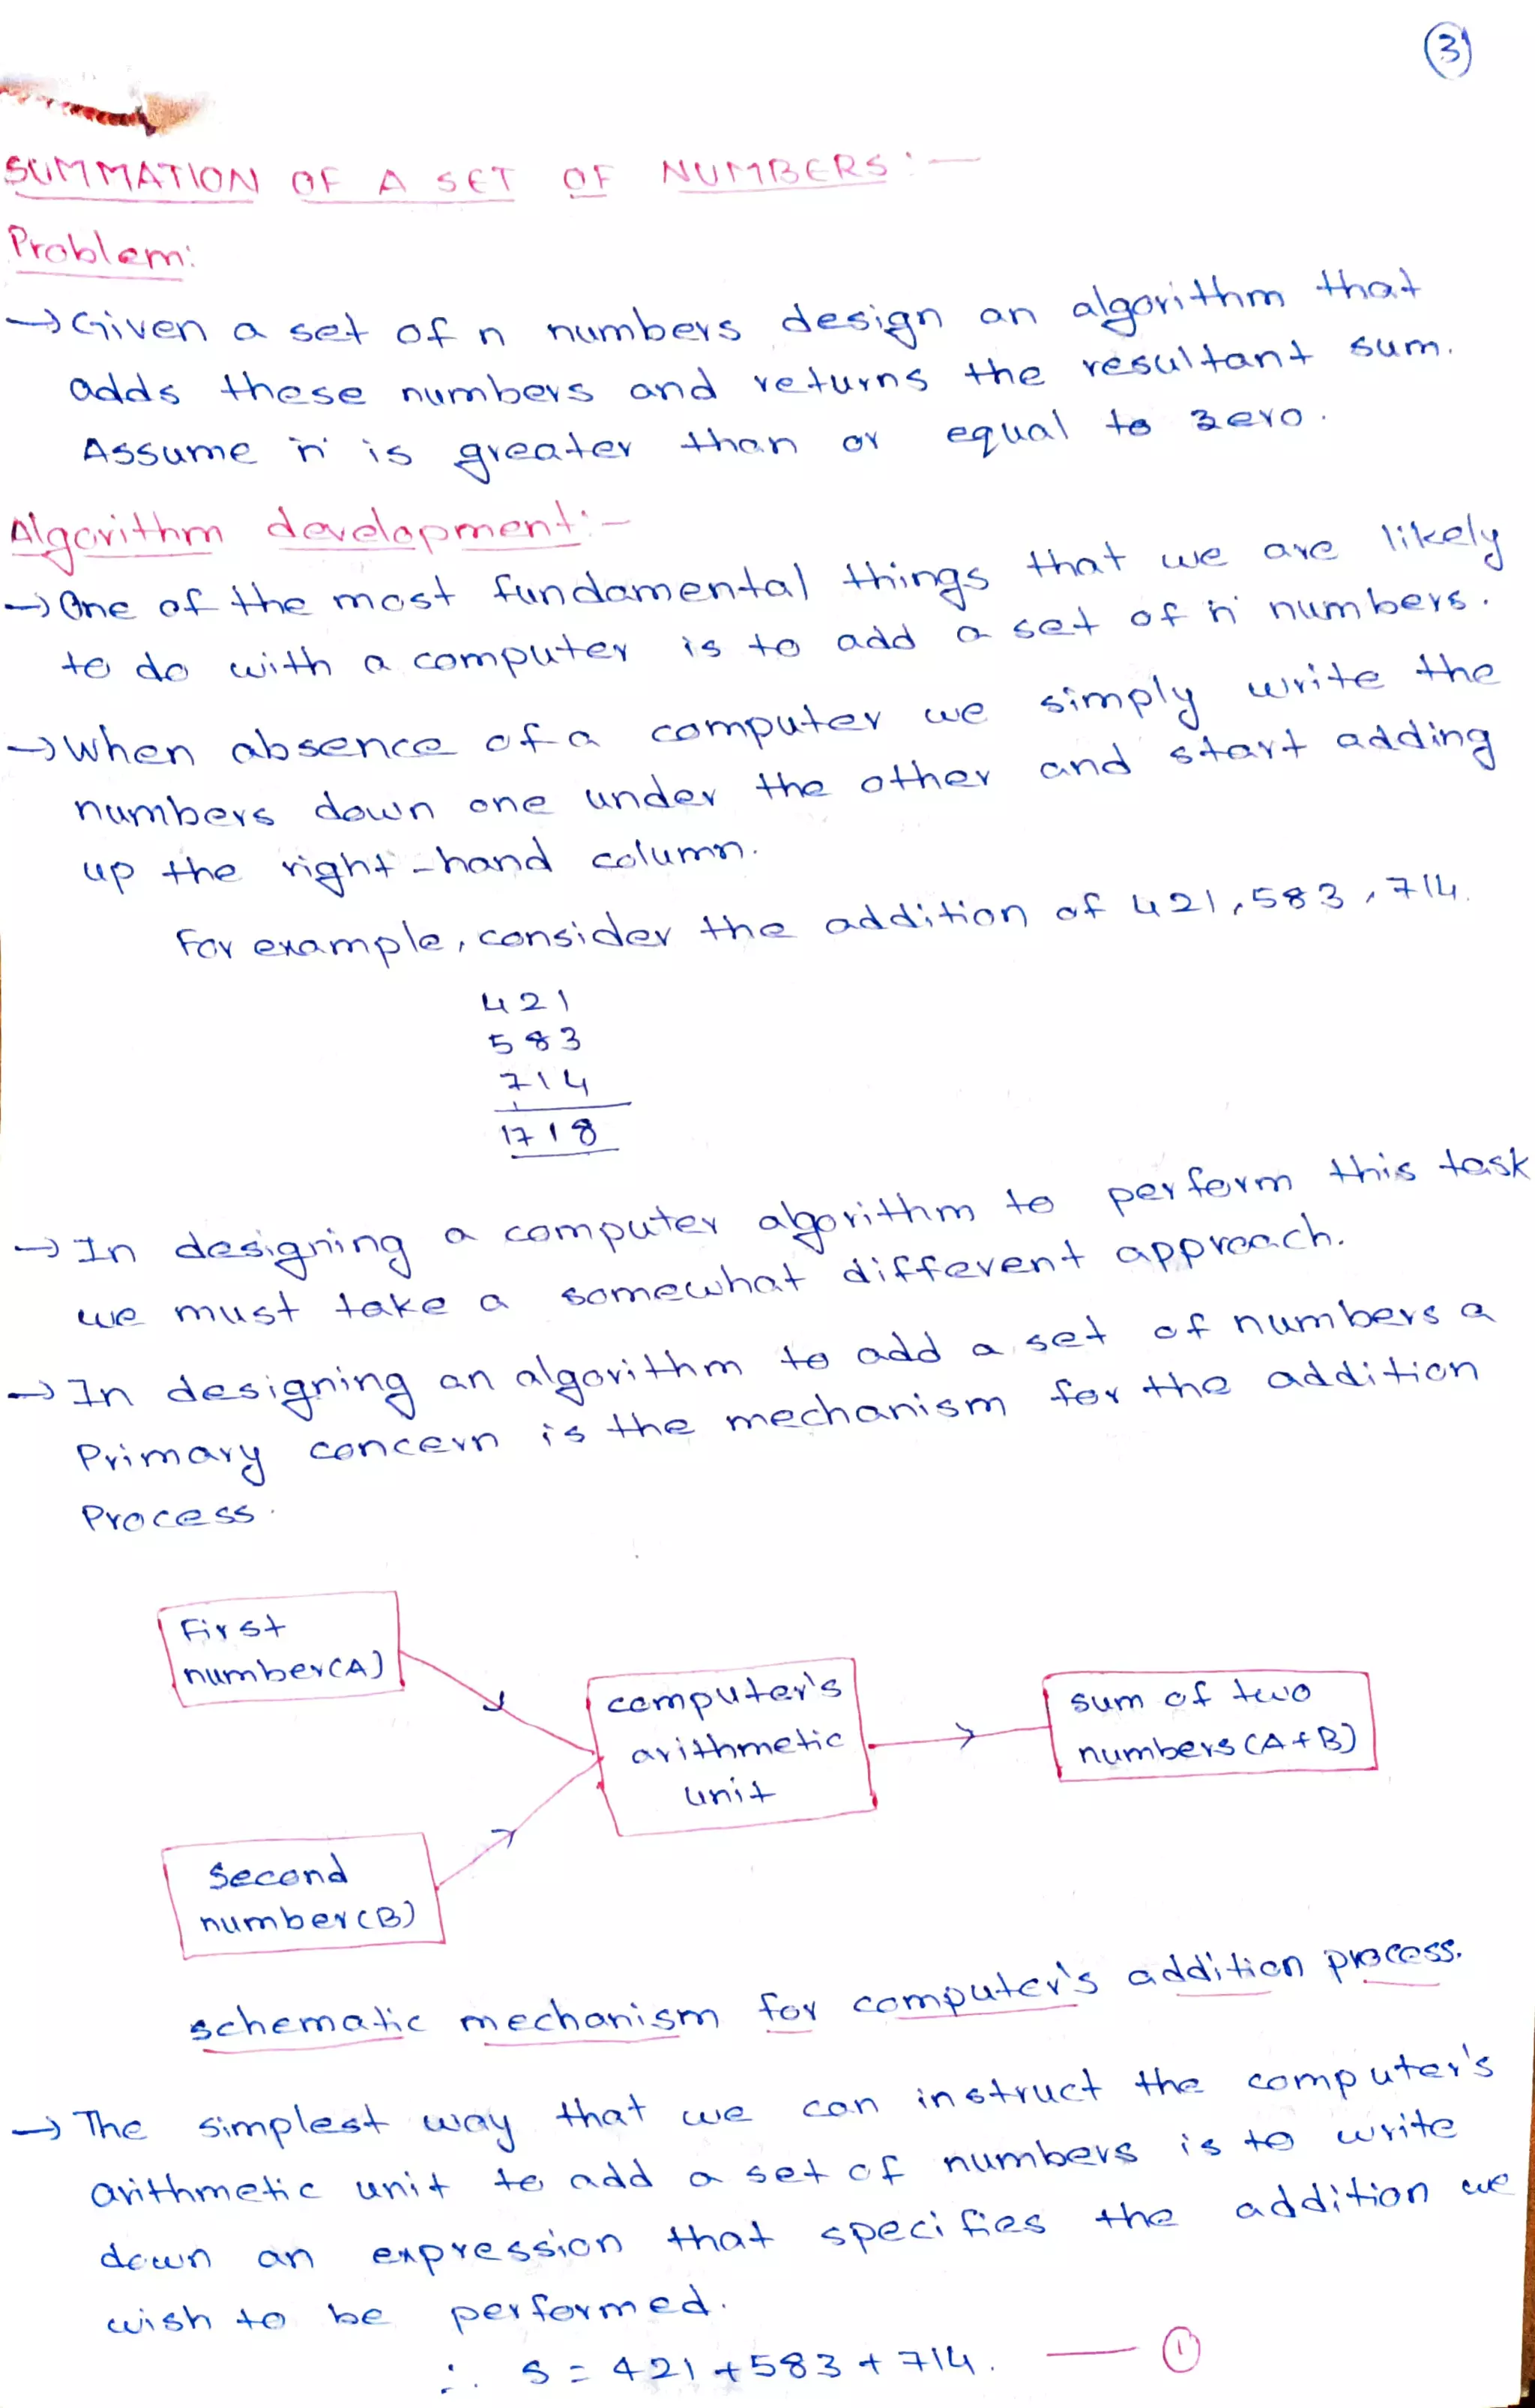 3
SUMMATION OF A SET OF NUMBERS :—
Problem:
→ Given a set of n numbers design an algorithm that
adds these numbers and returns the resultant sum.
Assume 'n' is greater than or equal to zero.
Algorithm development:-
→ One of the most fundamental things that we are likely
to do with a computer is to add a set of 'n' numbers.
→ When absence of a computer we simply write the
numbers down one under the other and start adding
up the right-hand column.
For example, consider the addition of 421, 583, 714.
421
583
714
1718
→ In designing a computer algorithm to perform this task
we must take a somewhat different approach.
→ In designing an algorithm to add a set of numbers a
Primary concern is the mechanism for the addition
Process.
First
number(A)
computer's
arithmetic
unit
sum of two
numbers (A+B)
Second
number(B)
schematic mechanism for computer's addition process.
→ The simplest way that we can instruct the computer's
arithmetic unit to add a set of numbers is to write
down an expression that specifies the addition we
wish to be performed.
∴ S = 421 + 583 + 714. — 1